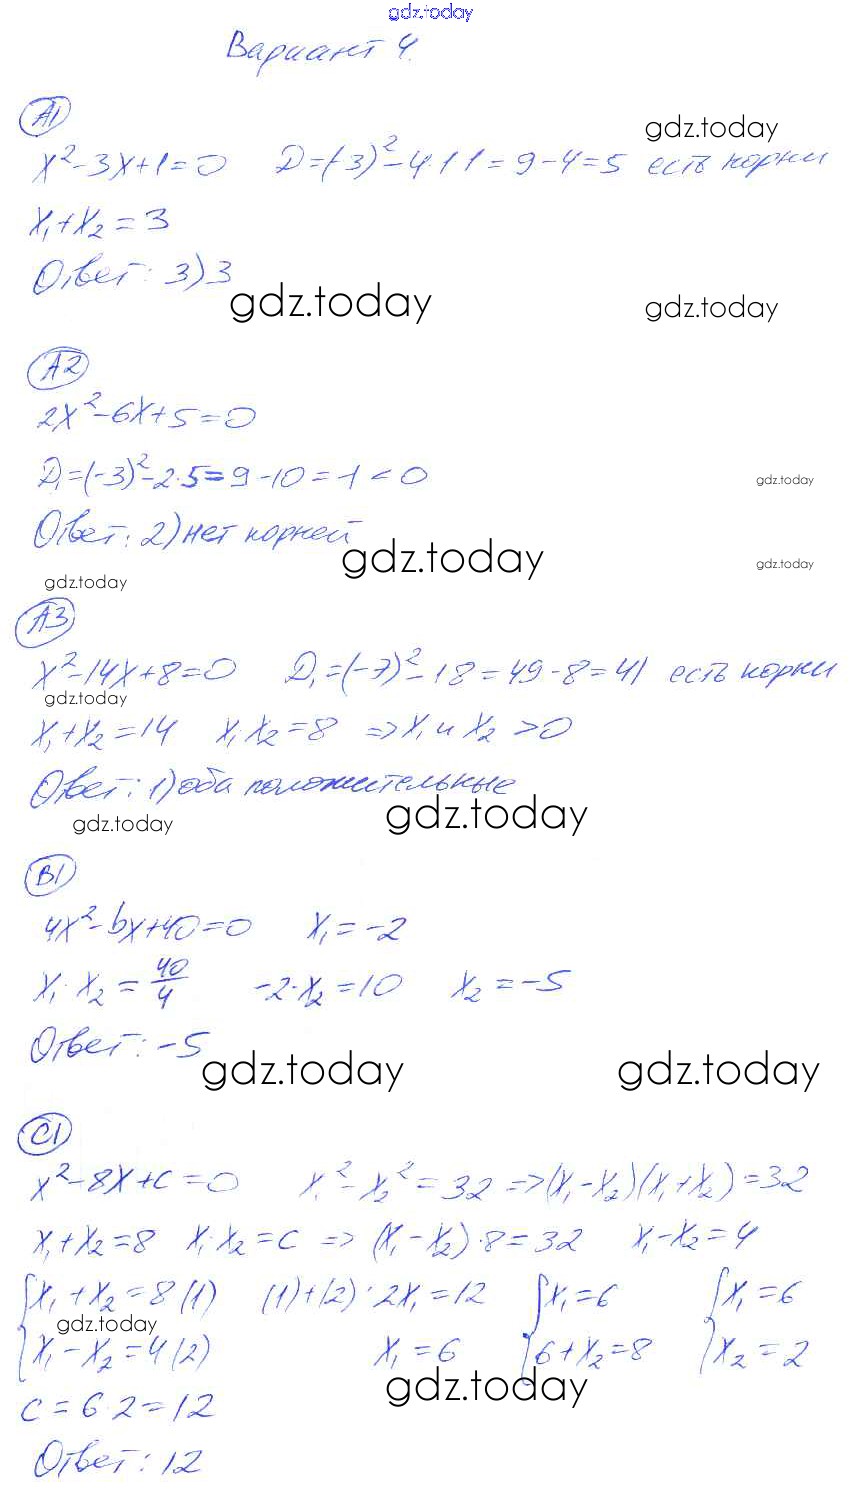 gdz.today
Вариант 4.
А1
gdz.today
x²-3x+1=0 D=(-3)²-4·1·1=9-4=5 есть корни
x₁+x₂=3
Ответ: 3)3
gdz.today gdz.today
А2
2x²-6x+5=0
D₁=(-3)²-2·5=9-10=-1<0
gdz.today
Ответ: 2) нет корней
gdz.today gdz.today
gdz.today
А3
x²-14x+8=0 D₁=(-7)²-1·8=49-8=41 есть корни
gdz.today
x₁+x₂=14 x₁·x₂=8 =>x₁ и x₂ >0
Ответ: 1) оба положительные
gdz.today gdz.today
В1
4x²-bx+40=0 x₁=-2
x₁·x₂=40/4 -2·x₂=10 x₂=-5
Ответ: -5
gdz.today gdz.today
С1
x²-8x+c=0 x₁²-x₂²=32 =>(x₁-x₂)(x₁+x₂)=32
x₁+x₂=8 x₁·x₂=c => (x₁-x₂)·8=32 x₁-x₂=4
{x₁+x₂=8 (1) (1)+(2): 2x₁=12 {x₁=6 {x₁=6
gdz.today
{x₁-x₂=4 (2) x₁=6 {6+x₂=8 {x₂=2
gdz.today
c=6·2=12
Ответ: 12